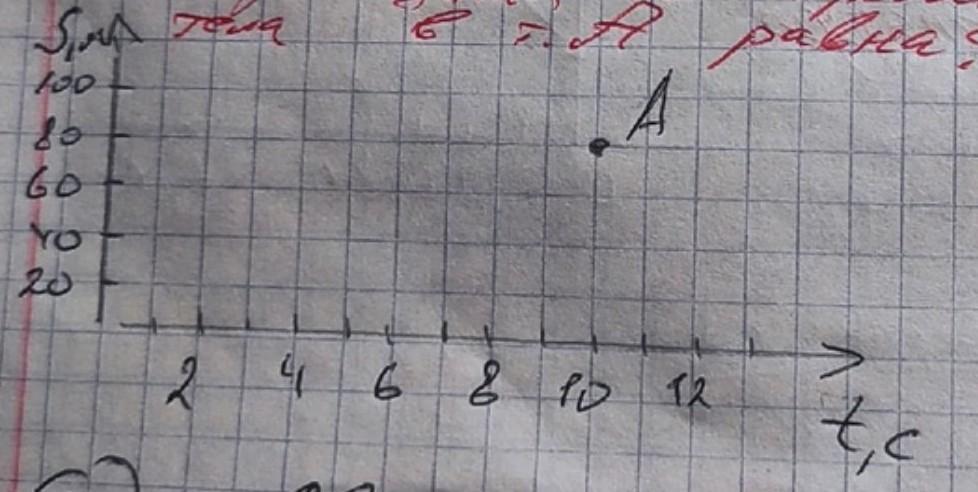 S,м тела в т. А равна:
100
A
80
60
40
20
2 4 6 8 10 12
t,c